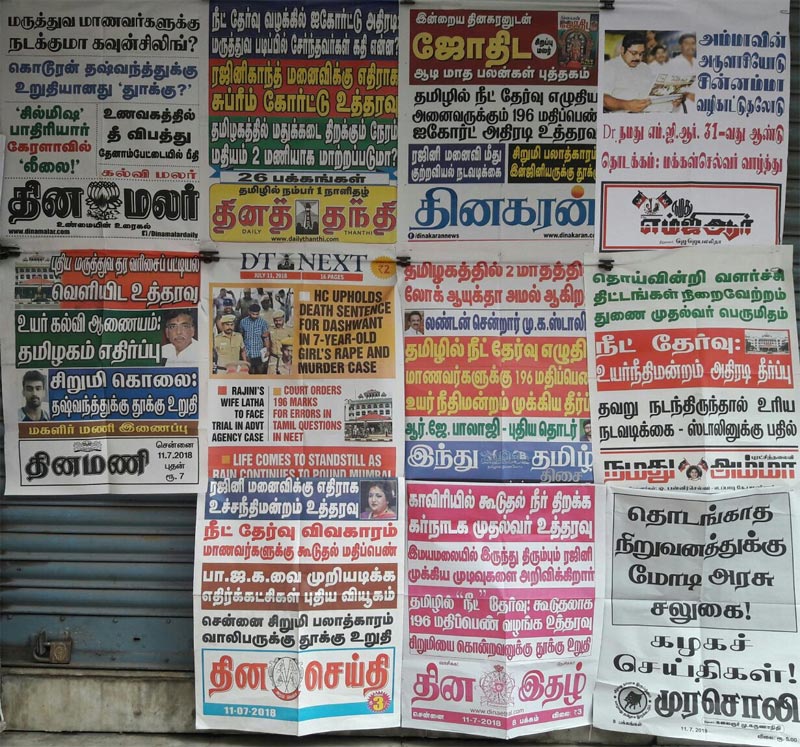 மருத்துவ மாணவர்களுக்கு
நடக்குமா கவுன்சிலிங்?
கொடூரன் தஷ்வந்த்துக்கு
உறுதியானது 'தூக்கு?'
'சில்மிஷ'
பாதிரியார்
கேரளாவில்
'லீலை!'
உணவகத்தில்
தீ விபத்து
தேனாம்பேட்டையில் பீதி
கல்வி மலர்
தின மலர்
உண்மையின் உரைகல்
www.dinamalar.com
/Dinamalardaily
நீட் தேர்வு வழக்கில் ஐகோர்ட்டு அதிரடி
மருத்துவ படிப்பில் சேர்ந்தவர்கள் கதி என்ன?
ரஜினிகாந்த் மனைவிக்கு எதிராக
சுப்ரீம் கோர்ட்டு உத்தரவு
தமிழகத்தில் மதுக்கடை திறக்கும் நேரம்
மதியம் 2 மணியாக மாற்றப்படுமா?
26 பக்கங்கள்
தமிழில் நம்பர் 1 நாளிதழ்
தினத் தந்தி
DAILY THANTHI
www.dailythanthi.com
இன்றைய தினகரனுடன்
ஜோதிட
சிறப்பு
மலர்
ஆடி மாத பலன்கள் புத்தகம்
தமிழில் நீட் தேர்வு எழுதிய
அனைவருக்கும் 196 மதிப்பெண்
ஐகோர்ட் அதிரடி உத்தரவு
ரஜினி மனைவி மீது
குற்றவியல் நடவடிக்கை
சிறுமி பலாத்காரம்
இன்ஜினியருக்கு தூக்கு
தினகரன்
/dinakarannews
www.dinakaran.com
அம்மாவின்
அருளாசியோடு
சின்னம்மா
வழிகாட்டுதலோடு
Dr. நமது எம்.ஜி.ஆர். 31-வது ஆண்டு
தொடக்கம்: மக்கள்செல்வர் வாழ்த்து
நமது
எம்ஜிஆர்
புதிய மருத்துவ தர வரிசைப் பட்டியல்
வெளியிட உத்தரவு
உயர் கல்வி ஆணையம்:
தமிழகம் எதிர்ப்பு
சிறுமி கொலை:
தஷ்வந்த்துக்கு தூக்கு உறுதி
மகளிர் மணி இணைப்பு
தினமணி
சென்னை
11.7.2018
புதன்
ரூ. 7
DT NEXT
JULY 11, 2018
16 PAGES
₹2
HC UPHOLDS
DEATH SENTENCE
FOR DASHWANT
IN 7-YEAR-OLD
GIRL'S RAPE AND
MURDER CASE
RAJINI'S
WIFE LATHA
TO FACE
TRIAL IN ADVT
AGENCY CASE
COURT ORDERS
196 MARKS
FOR ERRORS IN
TAMIL QUESTIONS
IN NEET
LIFE COMES TO STANDSTILL AS
RAIN CONTINUES TO POUND MUMBAI
தமிழகத்தில் 2 மாதத்தி
லோக் ஆயுக்தா அமல் ஆகிற
லண்டன் சென்றார் மு.க.ஸ்டாலி
தமிழில் நீட் தேர்வு எழுதி
மாணவர்களுக்கு 196 மதிப்பெண்
உயர் நீதிமன்றம் முக்கிய தீர்ப்
ஆர்.ஜே. பாலாஜி - புதிய தொடர்
இந்து தமிழ்
திசை
தொய்வின்றி வளர்ச்சி
திட்டங்கள் நிறைவேற்றம்
துணை முதல்வர் பெருமிதம்
நீட் தேர்வு:
உயர்நீதிமன்றம் அதிரடி தீர்ப்பு
தவறு நடந்திருந்தால் உரிய
நடவடிக்கை - ஸ்டாலினுக்கு பதில்
புரட்சித்தலைவி
நமது அம்மா
ரஜினி மனைவிக்கு எதிராக
உச்சநீதிமன்றம் உத்தரவு
நீட் தேர்வு விவகாரம்
மாணவர்களுக்கு கூடுதல் மதிப்பெண்
பா.ஜ.க.வை முறியடிக்க
எதிர்க்கட்சிகள் புதிய வியூகம்
சென்னை சிறுமி பலாத்காரம்
வாலிபருக்கு தூக்கு உறுதி
தின செய்தி
11-07-2018
3
காவிரியில் கூடுதல் நீர் திறக்க
கர்நாடக முதல்வர் உத்தரவு
இமயமலையில் இருந்து திரும்பும் ரஜினி
முக்கிய முடிவுகளை அறிவிக்கிறார்
தமிழில் "நீட்" தேர்வு: கூடுதலாக
196 மதிப்பெண் வழங்க உத்தரவு
சிறுமியை கொன்றவனுக்கு தூக்கு உறுதி
தின இதழ்
சென்னை
11-7-2018
8 பக்கம்
விலை: ரூ3
தொடங்காத
நிறுவனத்துக்கு
மோடி அரசு
சலுகை!
கழகச்
செய்திகள்!
முரசொலி
8 பக்கங்கள்
11.7.2018
விலை ரூ. 5.00